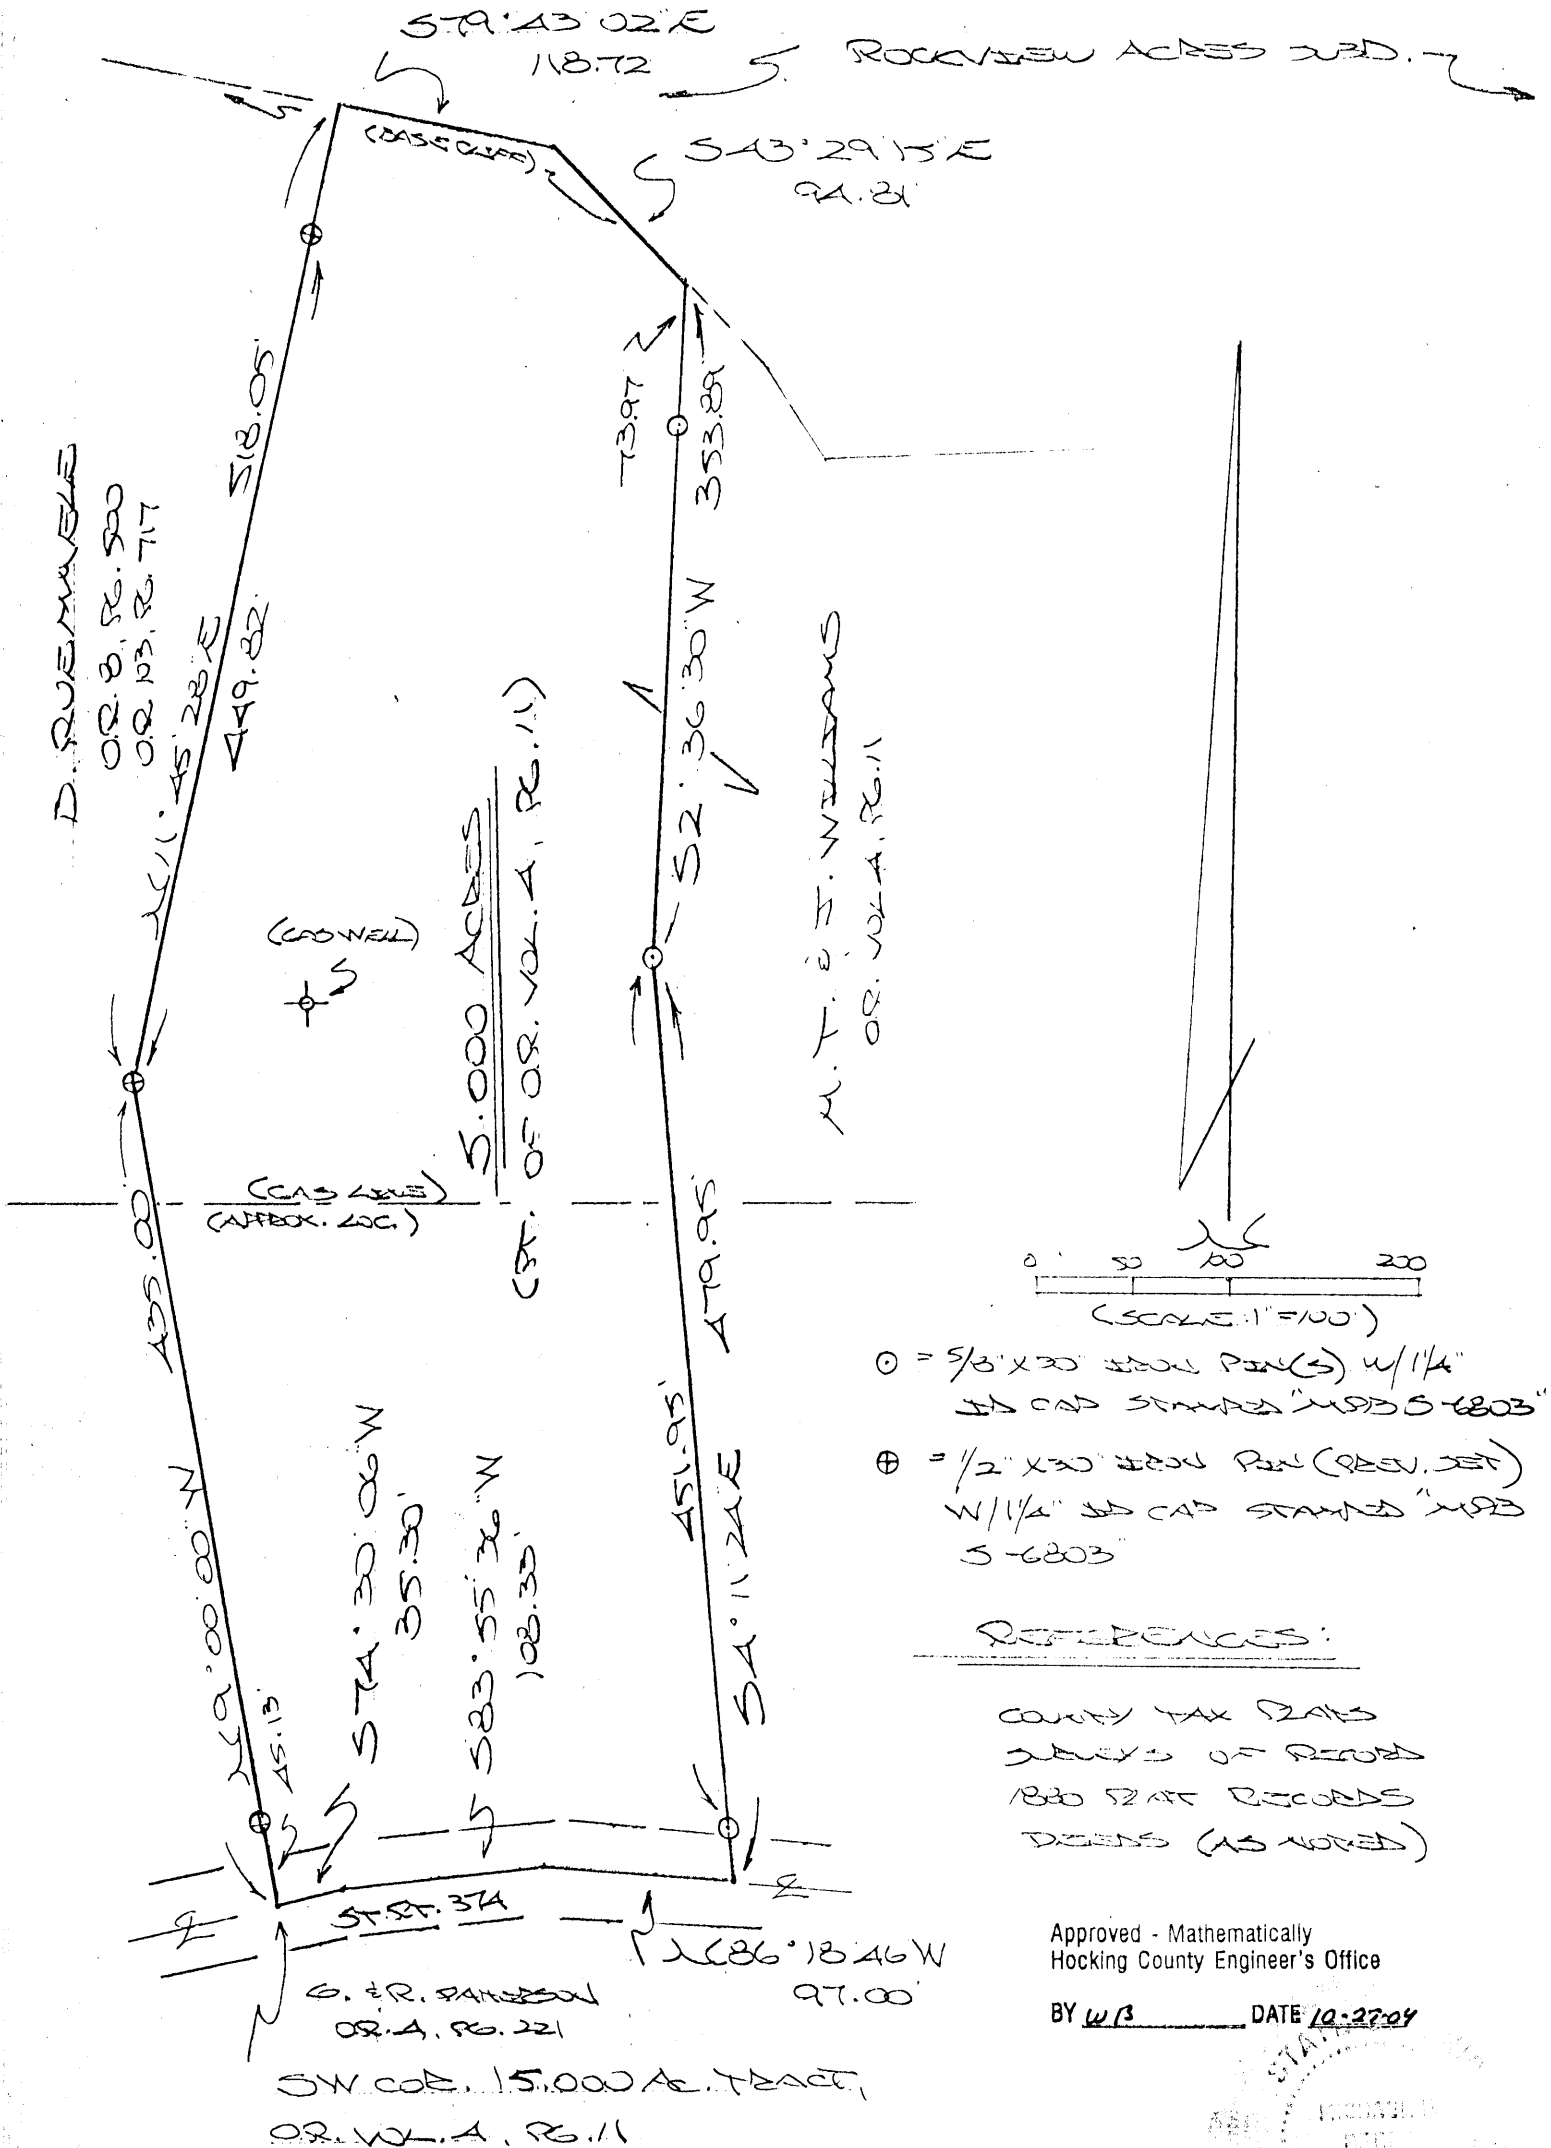 S79°43'02"E
118.72
ROCKVIEW ACRES SUBD.
(BASE CLIFF)
S43°29'15"E
94.81'
73.97
353.89
518.05'
D. RUEMMELE
O.R. 8, PG. 500
O.R. 103, PG. 717
N11°45'28"E
449.82'
S2°36'30"W
M. T. & J. WILLIAMS
O.R. VOL. 4, PG. 11
(GAS WELL)
5.000 ACRES
(PT. OF O.R. VOL. 4, PG. 11)
(GAS LINE)
(APPROX. LOC.)
435.00'
N9°00'00"W
45.13'
S74°30'06"W
35.30'
S83°55'36"W
108.33'
479.95'
451.95'
S4°11'24"E
N
0 50 100 200
(SCALE: 1"=100')
= 5/8"X30" IRON PIN(S) W/1 1/4"
ID CAP STAMPED "MPB S-6803"
= 1/2"X30" IRON PIN (PREV. SET)
W/1 1/4" ID CAP STAMPED "MPB
S-6803"
REFERENCES:
COUNTY TAX PLATS
SURVEYS OF RECORD
1880 PLAT RECORDS
DEEDS (AS NOTED)
ST. RT. 374
N86°18'46"W
97.00'
G. & R. PATTERSON
O.R. 4, PG. 221
SW COR. 15.000 AC. TRACT,
O.R. VOL. 4, PG. 11
Approved - Mathematically
Hocking County Engineer's Office
BY WB DATE 10-27-04